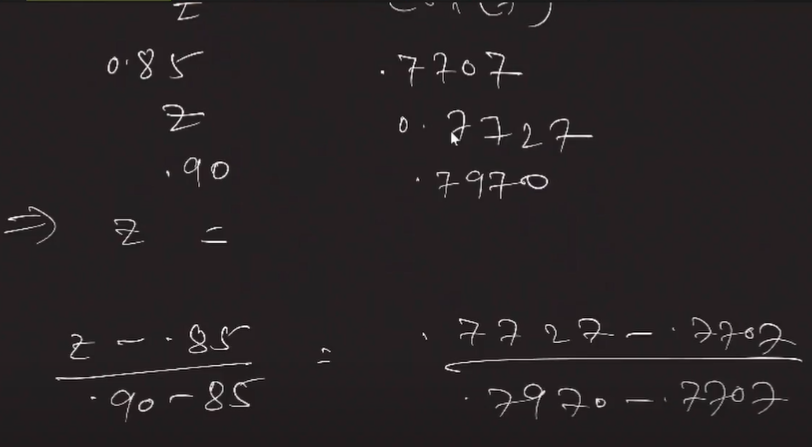 z
0.85 .7707
z 0.7727
.90 .7970
⇒ z =
z - .85 / .90 - 85 = .7727 - .7707 / .7970 - .7707